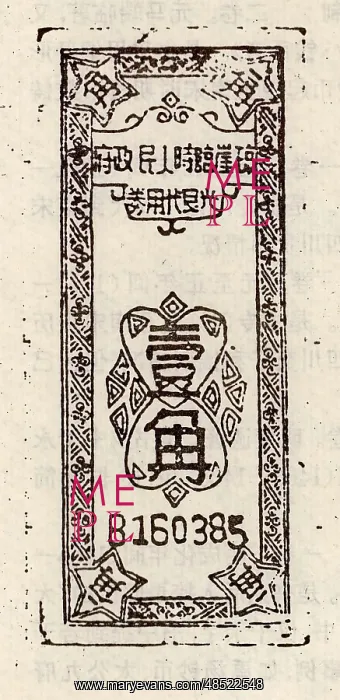 瓊崖臨時人民政府
光銀代用券
壹
角
B160385
ME
PL
ME
PL
www.maryevans.com/48522548